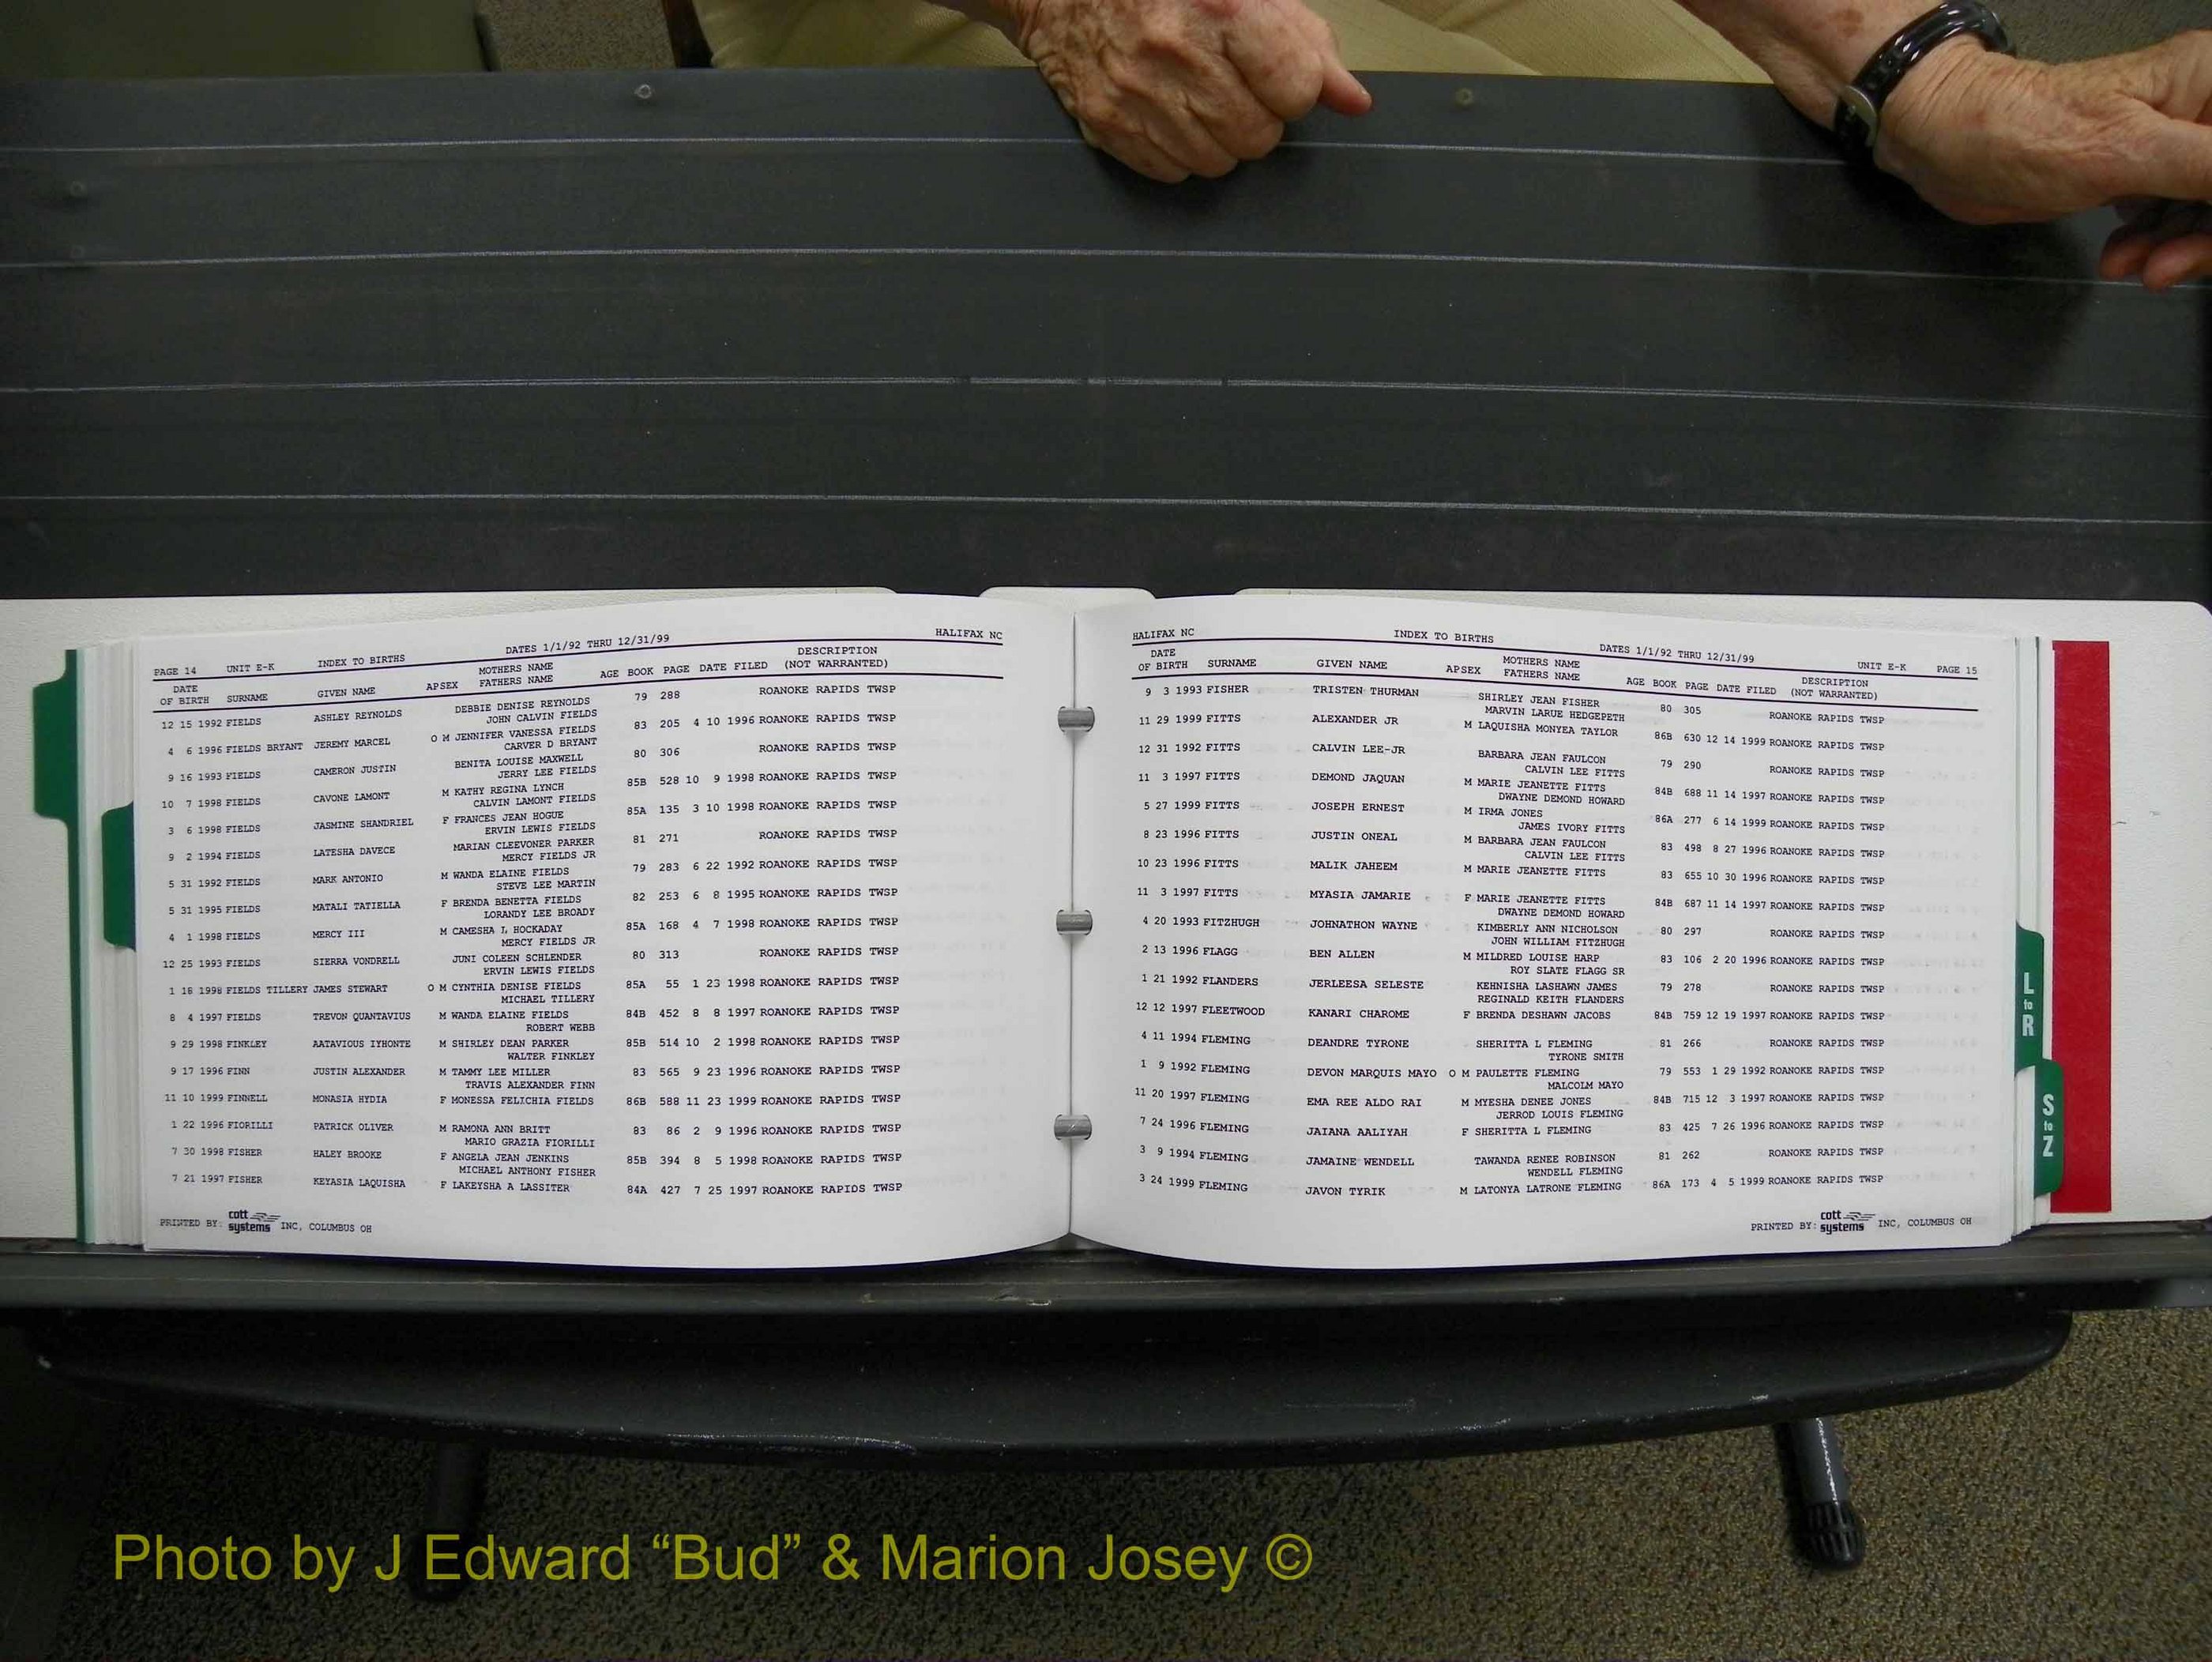 PAGE 14 UNIT E-K INDEX TO BIRTHS DATES 1/1/92 THRU 12/31/99 HALIFAX NC
DATE OF BIRTH SURNAME GIVEN NAME AP SEX MOTHERS NAME FATHERS NAME AGE BOOK PAGE DATE FILED DESCRIPTION (NOT WARRANTED)
12 15 1992 FIELDS ASHLEY REYNOLDS DEBBIE DENISE REYNOLDS 79 288 ROANOKE RAPIDS TWSP
JOHN CALVIN FIELDS
4 6 1996 FIELDS BRYANT JEREMY MARCEL O M JENNIFER VANESSA FIELDS 83 205 4 10 1996 ROANOKE RAPIDS TWSP
CARVER D BRYANT
9 16 1993 FIELDS CAMERON JUSTIN BENITA LOUISE MAXWELL 80 306 ROANOKE RAPIDS TWSP
JERRY LEE FIELDS
10 7 1998 FIELDS CAVONE LAMONT M KATHY REGINA LYNCH 85B 528 10 9 1998 ROANOKE RAPIDS TWSP
CALVIN LAMONT FIELDS
3 6 1998 FIELDS JASMINE SHANDRIEL F FRANCES JEAN HOGUE 85A 135 3 10 1998 ROANOKE RAPIDS TWSP
ERVIN LEWIS FIELDS
9 2 1994 FIELDS LATESHA DAVECE MARIAN CLEEVONER PARKER 81 271 ROANOKE RAPIDS TWSP
MERCY FIELDS JR
5 31 1992 FIELDS MARK ANTONIO M WANDA ELAINE FIELDS 79 283 6 22 1992 ROANOKE RAPIDS TWSP
STEVE LEE MARTIN
5 31 1995 FIELDS MATALI TATIELLA F BRENDA BENETTA FIELDS 82 253 6 8 1995 ROANOKE RAPIDS TWSP
LORANDY LEE BROADY
4 1 1998 FIELDS MERCY III M CAMESHA L HOCKADAY 85A 168 4 7 1998 ROANOKE RAPIDS TWSP
MERCY FIELDS JR
12 25 1993 FIELDS SIERRA VONDRELL JUNI COLEEN SCHLENDER 80 313 ROANOKE RAPIDS TWSP
ERVIN LEWIS FIELDS
1 16 1998 FIELDS TILLERY JAMES STEWART O M CYNTHIA DENISE FIELDS 85A 55 1 23 1998 ROANOKE RAPIDS TWSP
MICHAEL TILLERY
8 4 1997 FIELDS TREVON QUANTAVIUS M WANDA ELAINE FIELDS 84B 452 8 8 1997 ROANOKE RAPIDS TWSP
ROBERT WEBB
9 29 1998 FINKLEY AATAVIOUS IYHONTE M SHIRLEY DEAN PARKER 85B 514 10 2 1998 ROANOKE RAPIDS TWSP
WALTER FINKLEY
9 17 1996 FINN JUSTIN ALEXANDER M TAMMY LEE MILLER 83 565 9 23 1996 ROANOKE RAPIDS TWSP
TRAVIS ALEXANDER FINN
11 10 1999 FINNELL MONASIA HYDIA F MONESSA FELICHIA FIELDS 86B 588 11 23 1999 ROANOKE RAPIDS TWSP
1 22 1996 FIORILLI PATRICK OLIVER M RAMONA ANN BRITT 83 86 2 9 1996 ROANOKE RAPIDS TWSP
MARIO GRAZIA FIORILLI
7 30 1998 FISHER HALEY BROOKE F ANGELA JEAN JENKINS 85B 394 8 5 1998 ROANOKE RAPIDS TWSP
MICHAEL ANTHONY FISHER
7 21 1997 FISHER KEYASIA LAQUISHA F LAKEYSHA A LASSITER 84A 427 7 25 1997 ROANOKE RAPIDS TWSP
PRINTED BY: cott systems INC, COLUMBUS OH
HALIFAX NC INDEX TO BIRTHS DATES 1/1/92 THRU 12/31/99 UNIT E-K PAGE 15
DATE OF BIRTH SURNAME GIVEN NAME AP SEX MOTHERS NAME FATHERS NAME AGE BOOK PAGE DATE FILED DESCRIPTION (NOT WARRANTED)
9 3 1993 FISHER TRISTEN THURMAN SHIRLEY JEAN FISHER 80 305 ROANOKE RAPIDS TWSP
MARVIN LARUE HEDGEPETH
11 29 1999 FITTS ALEXANDER JR M LAQUISHA MONYEA TAYLOR 86B 630 12 14 1999 ROANOKE RAPIDS TWSP
12 31 1992 FITTS CALVIN LEE-JR BARBARA JEAN FAULCON 79 290 ROANOKE RAPIDS TWSP
CALVIN LEE FITTS
11 3 1997 FITTS DEMOND JAQUAN M MARIE JEANETTE FITTS 84B 688 11 14 1997 ROANOKE RAPIDS TWSP
DWAYNE DEMOND HOWARD
5 27 1999 FITTS JOSEPH ERNEST M IRMA JONES 86A 277 6 14 1999 ROANOKE RAPIDS TWSP
JAMES IVORY FITTS
8 23 1996 FITTS JUSTIN ONEAL M BARBARA JEAN FAULCON 83 498 8 27 1996 ROANOKE RAPIDS TWSP
CALVIN LEE FITTS
10 23 1996 FITTS MALIK JAHEEM M MARIE JEANETTE FITTS 83 655 10 30 1996 ROANOKE RAPIDS TWSP
11 3 1997 FITTS MYASIA JAMARIE F MARIE JEANETTE FITTS 84B 687 11 14 1997 ROANOKE RAPIDS TWSP
DWAYNE DEMOND HOWARD
4 20 1993 FITZHUGH JOHNATHON WAYNE KIMBERLY ANN NICHOLSON 80 297 ROANOKE RAPIDS TWSP
JOHN WILLIAM FITZHUGH
2 13 1996 FLAGG BEN ALLEN M MILDRED LOUISE HARP 83 106 2 20 1996 ROANOKE RAPIDS TWSP
ROY SLATE FLAGG SR
1 21 1992 FLANDERS JERLEESA SELESTE KEHNISHA LASHAWN JAMES 79 278 ROANOKE RAPIDS TWSP
REGINALD KEITH FLANDERS
12 12 1997 FLEETWOOD KANARI CHAROME F BRENDA DESHAWN JACOBS 84B 759 12 19 1997 ROANOKE RAPIDS TWSP
4 11 1994 FLEMING DEANDRE TYRONE SHERITTA L FLEMING 81 266 ROANOKE RAPIDS TWSP
TYRONE SMITH
1 9 1992 FLEMING DEVON MARQUIS MAYO O M PAULETTE FLEMING 79 553 1 29 1992 ROANOKE RAPIDS TWSP
MALCOLM MAYO
11 20 1997 FLEMING EMA REE ALDO RAI M MYESHA DENEE JONES 84B 715 12 3 1997 ROANOKE RAPIDS TWSP
JERROD LOUIS FLEMING
7 24 1996 FLEMING JAIANA AALIYAH F SHERITTA L FLEMING 83 425 7 26 1996 ROANOKE RAPIDS TWSP
3 9 1994 FLEMING JAMAINE WENDELL TAWANDA RENEE ROBINSON 81 262 ROANOKE RAPIDS TWSP
WENDELL FLEMING
3 24 1999 FLEMING JAVON TYRIK M LATONYA LATRONE FLEMING 86A 173 4 5 1999 ROANOKE RAPIDS TWSP
PRINTED BY: cott systems INC, COLUMBUS OH
L to R
S to Z
Photo by J Edward “Bud” & Marion Josey ©